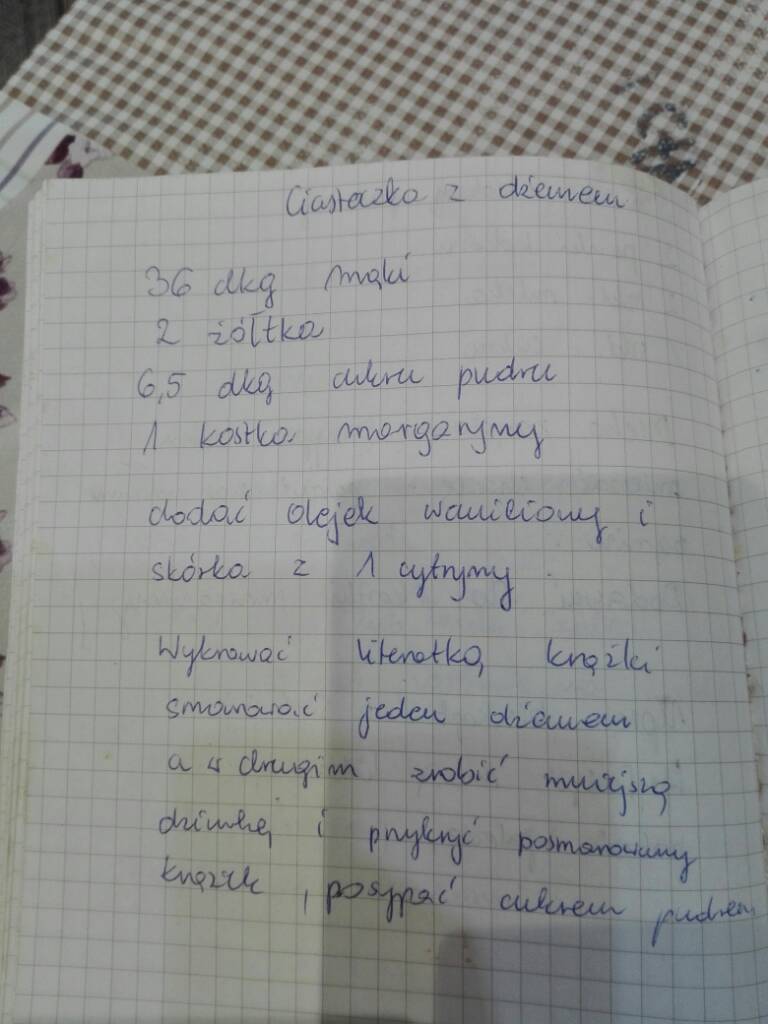 Ciasteczka z dżemem
36 dkg mąki
2 żółtka
6,5 dkg cukru pudru
1 kostka margaryny
dodać olejek waniliowy i
skórka z 1 cytryny
Wykrawać literatką krążki
smarować jeden dżemem
a w drugim zrobić mniejszą
dziurkę i przykryć posmarowany
krążek, posypać cukrem pudrem